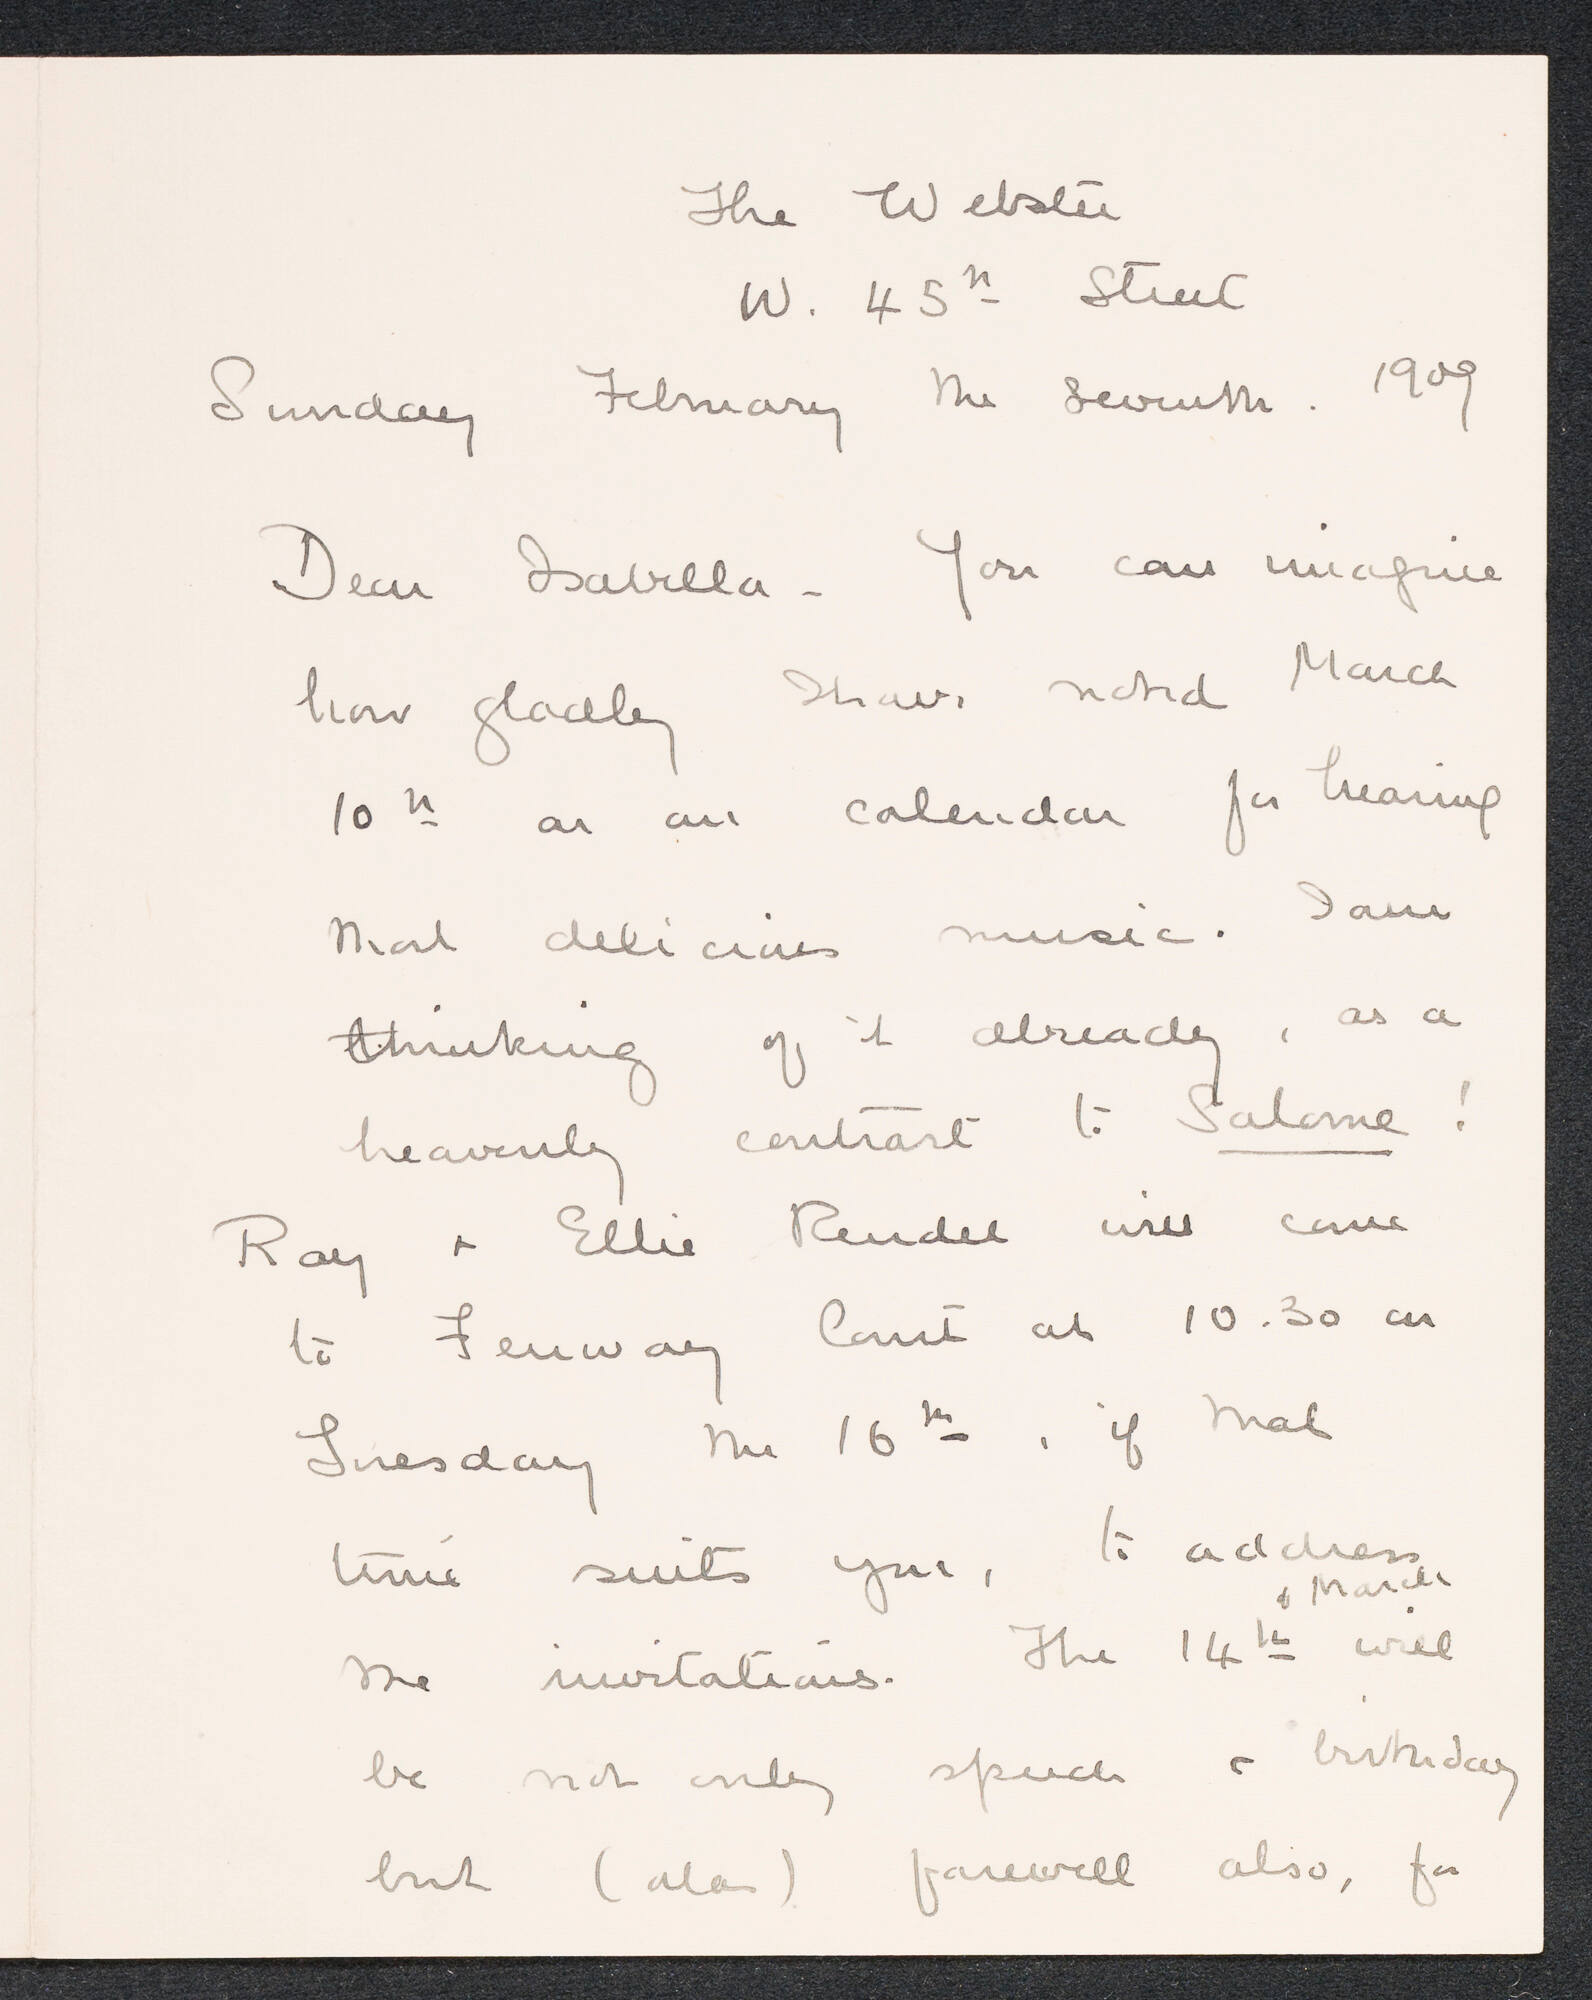 The Webster
W. 45th Street
Sunday February the seventh. 1909
Dear Isabella - You can imagine
how gladly I have noted March
10th on our calendar for hearing
that delicious music. I am
thinking of it already, as a
heavenly contrast to Salome!
Ray & Ellie Rendel will come
to Fenway Court at 10.30 on
Tuesday the 16th, if that
time suits you, to address
the invitations. The 14th of March will
be not only speech & birthday
but (alas) farewell also, for